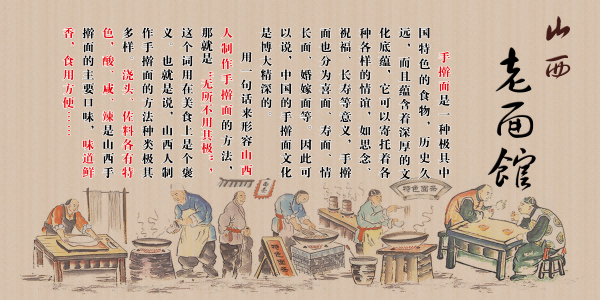 山西
老面馆
手擀面是一种极具中
国特色的食物，历史久
远，而且蕴含着深厚的文
化底蕴，它可以寄托着各
种各样的情谊，如思念、
祝福、长寿等意义，手擀
面也分为喜面、寿面、情
长面、婚嫁面等。因此可
以说，中国的手擀面文化
是博大精深的。
用一句话来形容山西
人制作手擀面的方法，
那就是“无所不用其极”，
这个词用在美食上是个褒
义，也就是说，山西人制
作手擀面的方法种类极其
多样。浇头、佐料各有特
色，酸、咸、辣是山西手
擀面的主要口味，味道鲜
香，食用方便……
特色面条
特色面条